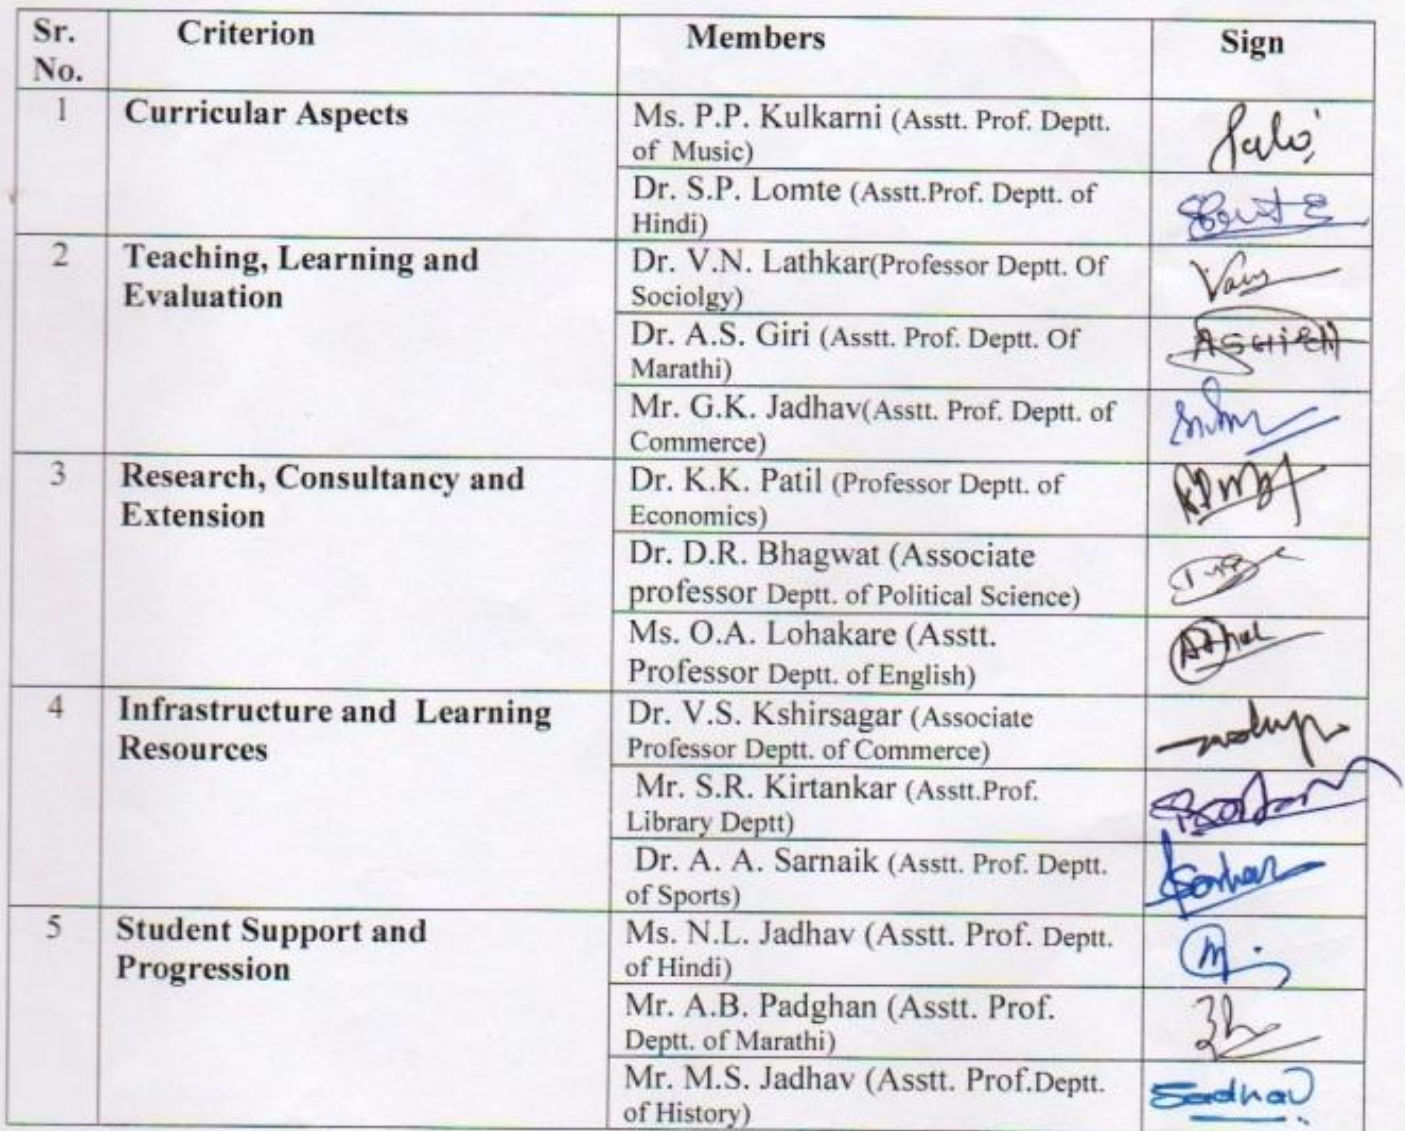 Sr. Criterion Members Sign
No.
1 Curricular Aspects Ms. P.P. Kulkarni (Asstt. Prof. Deptt.
of Music)
Dr. S.P. Lomte (Asstt.Prof. Deptt. of
Hindi)
2 Teaching, Learning and Dr. V.N. Lathkar(Professor Deptt. Of
Evaluation Sociolgy)
Dr. A.S. Giri (Asstt. Prof. Deptt. Of
Marathi)
Mr. G.K. Jadhav(Asstt. Prof. Deptt. of
Commerce)
3 Research, Consultancy and Dr. K.K. Patil (Professor Deptt. of
Extension Economics)
Dr. D.R. Bhagwat (Associate
professor Deptt. of Political Science)
Ms. O.A. Lohakare (Asstt.
Professor Deptt. of English)
4 Infrastructure and Learning Dr. V.S. Kshirsagar (Associate
Resources Professor Deptt. of Commerce)
Mr. S.R. Kirtankar (Asstt.Prof.
Library Deptt)
Dr. A. A. Sarnaik (Asstt. Prof. Deptt.
of Sports)
5 Student Support and Ms. N.L. Jadhav (Asstt. Prof. Deptt.
Progression of Hindi)
Mr. A.B. Padghan (Asstt. Prof.
Deptt. of Marathi)
Mr. M.S. Jadhav (Asstt. Prof.Deptt.
of History)